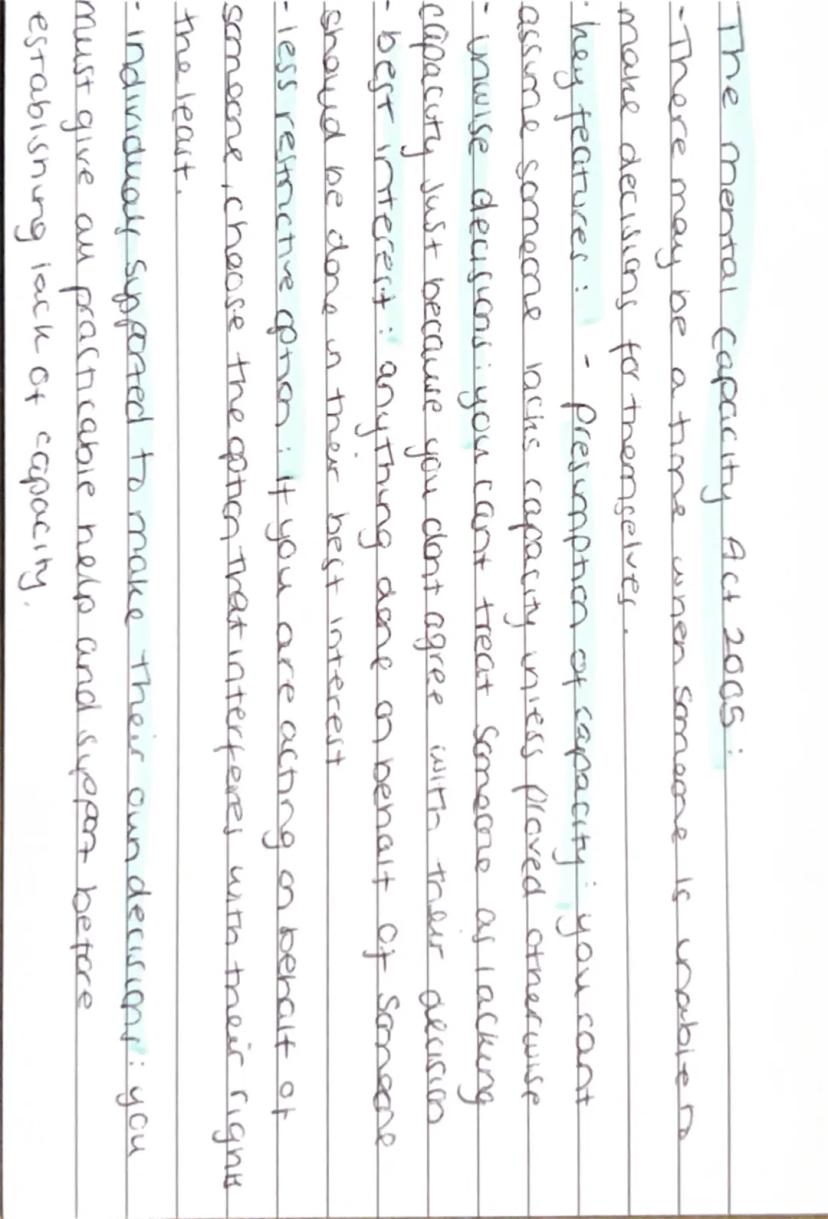 The mental capacity Act 2005:
- There may be a time when someone is unable to
make decisions for themselves.
· key features: - presumption of capacity: you cant
assume someone lacks capacity unless proved otherwise
- unwise decisions: you cant treat someone as lacking
capacity just because you dont agree with their decision
- best interest: anything done on behalf of someone
should be done in their best interest
- less restrictive option: if you are acting on behalf of
someone, choose the option that interferes with their rights
the least.
- individuals supported to make their own decisions: you
must give all practicable help and support before
establishing lack of capacity.